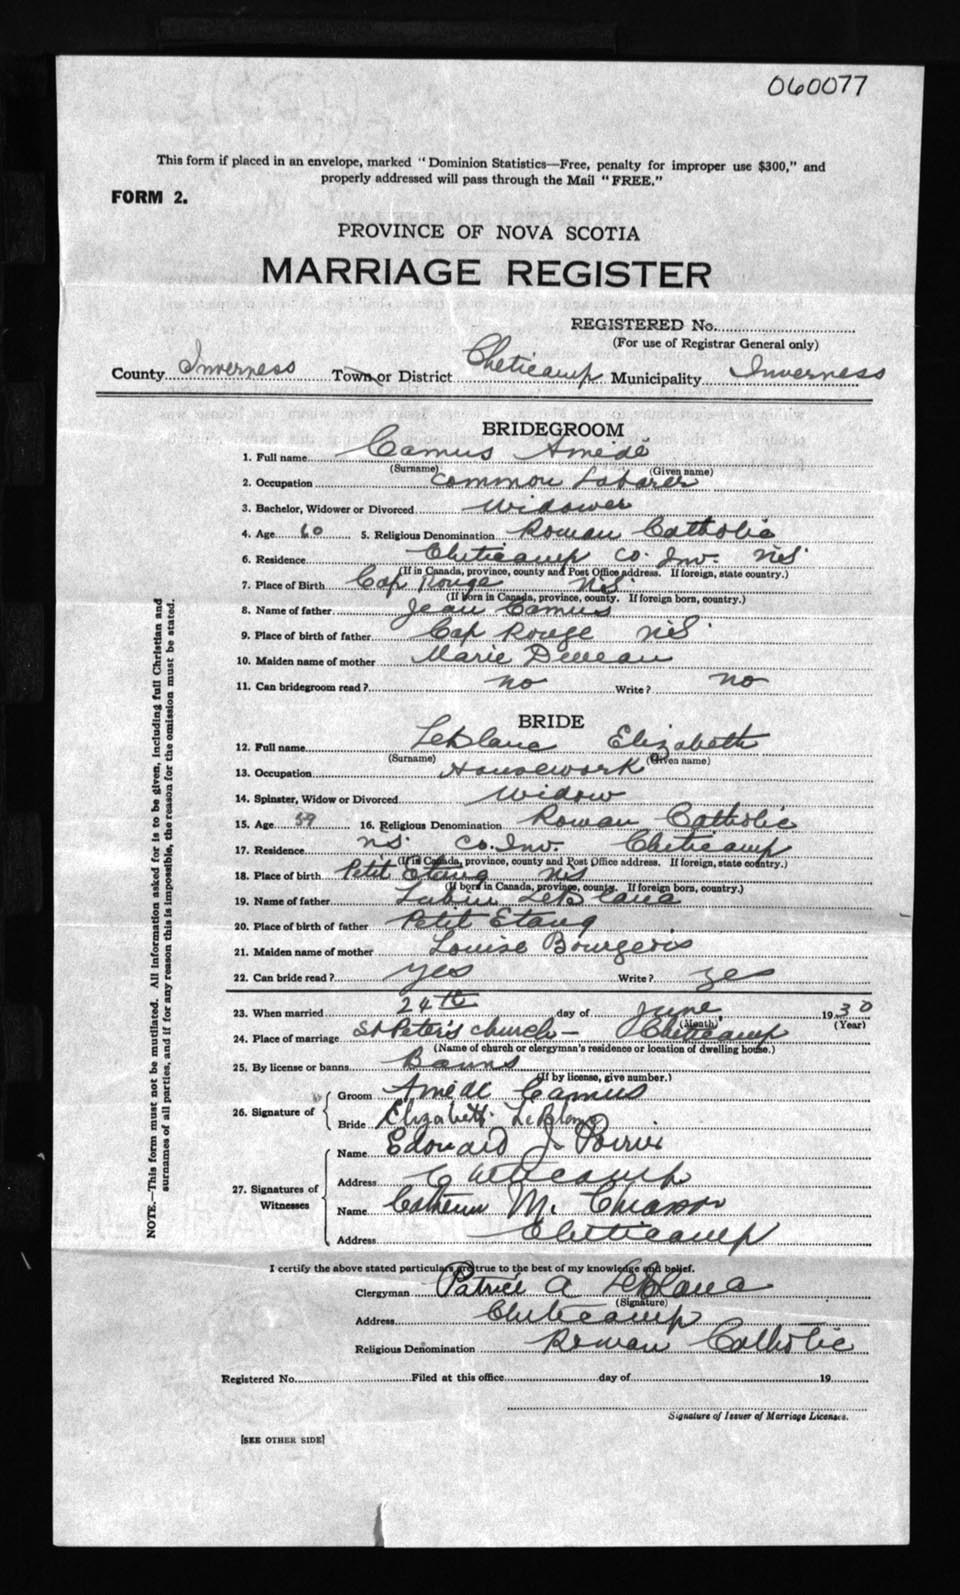 060077
This form if placed in an envelope, marked "Dominion Statistics—Free, penalty for improper use $300," and
properly addressed will pass through the Mail "FREE."
FORM 2.
PROVINCE OF NOVA SCOTIA
MARRIAGE REGISTER
REGISTERED No.
(For use of Registrar General only)
County Inverness Town or District Cheticamp Municipality Inverness
BRIDEGROOM
1. Full name Camus Amédé
(Surname) (Given name)
2. Occupation Common Laborer
3. Bachelor, Widower or Divorced Widower
4. Age 60 5. Religious Denomination Roman Catholic
6. Residence Cheticamp Co. Inv. NS
(If in Canada, province, county and Post Office address. If foreign, state country.)
7. Place of Birth Cap Rouge NS
(If born in Canada, province, county. If foreign born, country.)
8. Name of father Jean Camus
9. Place of birth of father Cap Rouge NS
10. Maiden name of mother Marie Deveau
11. Can bridegroom read? no Write? no
BRIDE
12. Full name LeBlanc Elizabeth
(Surname) (Given name)
13. Occupation Housework
14. Spinster, Widow or Divorced Widow
15. Age 59 16. Religious Denomination Roman Catholic
17. Residence NS Co. Inv. Cheticamp
(If in Canada, province, county and Post Office address. If foreign, state country.)
18. Place of birth Petit Etang NS
(If born in Canada, province, county. If foreign born, country.)
19. Name of father Lubin LeBlanc
20. Place of birth of father Petit Etang
21. Maiden name of mother Louise Bourgeois
22. Can bride read? yes Write? yes
23. When married 24th day of June 1930
(Month) (Year)
24. Place of marriage St Peter's Church – Cheticamp
(Name of church or clergyman's residence or location of dwelling house.)
25. By license or banns Banns
(If by license, give number.)
26. Signature of
Groom Amédé Camus
Bride Elizabeth LeBlanc
27. Signatures of Witnesses
Name Edouard J. Poirier
Address Cheticamp
Name M. Chiasson
Address Cheticamp
I certify the above stated particulars are true to the best of my knowledge and belief.
Clergyman A LeBlanc
(Signature)
Address Cheticamp
Religious Denomination Roman Catholic
Registered No. Filed at this office day of 19
Signature of Issuer of Marriage Licenses.
[SEE OTHER SIDE]
NOTE.—This form must not be mutilated. All information asked for is to be given, including full Christian and
surnames of all parties, and if for any reason this is impossible, the reason for the omission must be stated.